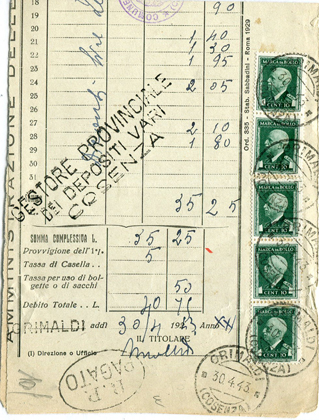 COMUNE
18 90
19
20 1 40
21 1 30
22 1 95
23
24 2 05
25
26
27 2 10
28 1 80
29
30
31
35 25
GESTORE PROVINCIALE
DEI DEPOSITI VARI
COSENZA
AMMINISTRAZIONE DELLE
Ord. 335 - Stab. Sabbadini - Roma 1929
SOMMA COMPLESSIVA L. 35 25
Provvigione dell'1%. 5
Tassa di Casella . .
Tassa per uso di bol-
gette o di sacchi 50
Debito Totale . . L. 40 75
GRIMALDI addì 30/4 1943 Anno XXI
IL TITOLARE
(1) Direzione o Ufficio
R.P.
PAGATO
GRIMALDI
30.4.43
(COSENZA)
MARCA DA BOLLO
CENT. 10
MARCA DA BOLLO
CENT. 10
MARCA DA BOLLO
CENT. 10
MARCA DA BOLLO
CENT. 10
MARCA DA BOLLO
CENT. 10